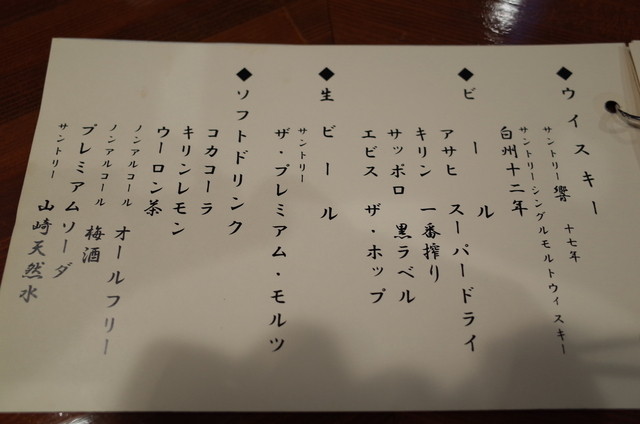 ◆ウイスキー
サントリー 響 十七年
サントリーシングルモルトウィスキー
白州十二年
◆ビール
アサヒ スーパードライ
キリン 一番搾り
サッポロ 黒ラベル
エビス ザ・ホップ
◆生ビール
サントリー
ザ・プレミアム・モルツ
◆ソフトドリンク
コカコーラ
キリンレモン
ウーロン茶
ノンアルコール オールフリー
ノンアルコール 梅酒
プレミアムソーダ
サントリー 山崎天然水